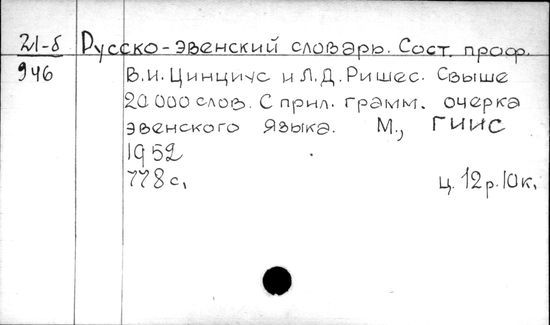 21-б Русско-эвенский словарь. Сост. проф.
946 В.И. Цинциус и Л.Д. Ришес. Свыше
20 000 слов. С прил. грамм. очерка
эвенского языка. М., ГИИС
1952
778 с. ц. 12 р. 10 к.